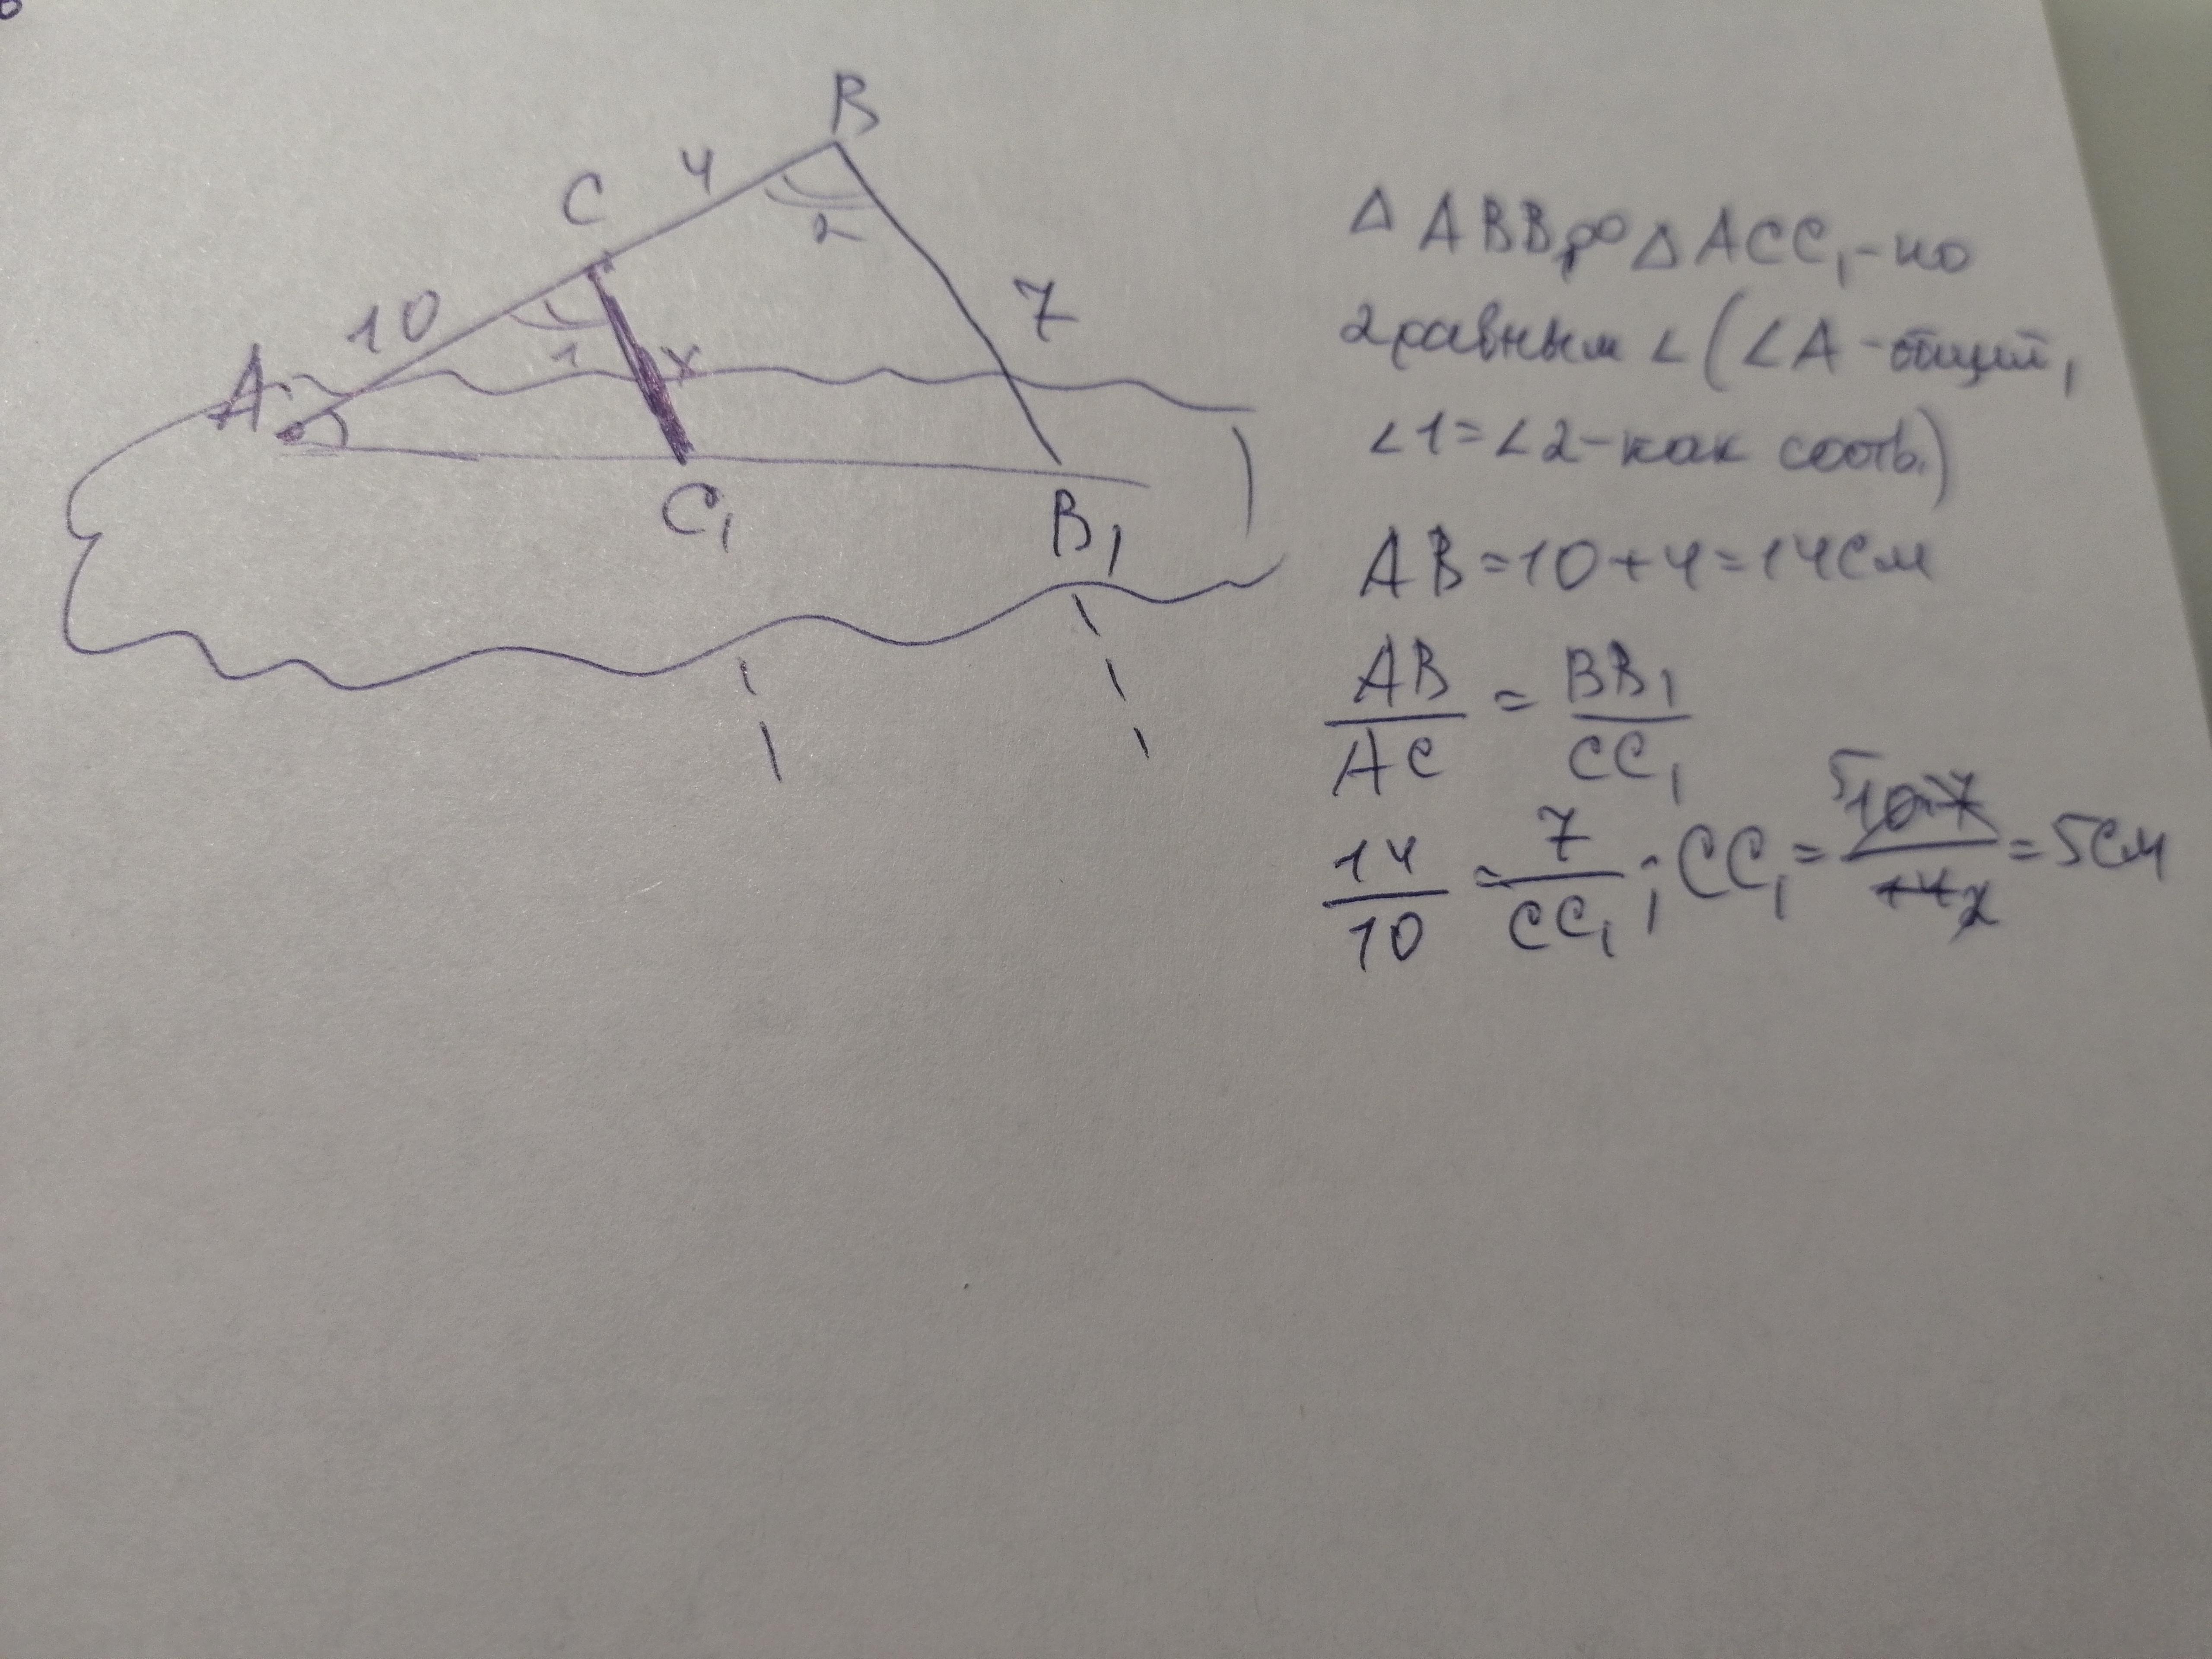 B
C 4
2
10
7
A
1 x
C₁
B₁
△ABB₁∾△ACC₁-по
2 равным ∠(∠A-общий,
∠1=∠2-как соотв.)
AB=10+4=14см
AB/AC = BB₁/CC₁
14/10 = 7/CC₁; CC₁ = 10·7/14 = 5см